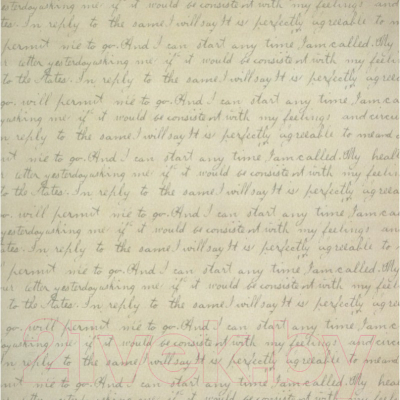 yesterday asking me if it would be consistent with my feelings and
to the same. I will say It is perfectly agreeable to m
permit me to go. And I can start any time I am called. My
letter yesterday asking me if it would be consistent with my feeli
to the States. In reply to the same. I will say It is perfectly agreea
go. will permit me to go. And I can start any time, I am ca
asking me if it would be consistent with my feelings and circu
n reply to the same. I will say It is perfectly agreeable to me and m
mit me to go. And I can start any time I am called. My heal
letter yesterday asking me if it would be consistent with my feeli
to the States. In reply to the same. I will say It is perfectly agreea
go. will permit me to go. And I can start any time, I am c
yesterday asking me if it would be consistent with my feelings an
tes. In reply to the same. I will say It is perfectly agreeable to
permit me to go. And I can start any time I am called. My
letter yesterday asking me if it would be consistent with my
to the States. In reply to the same. I will say It is perfectly agre
go. will permit me to go. And I can start any time, I am c
asking me if it would be consistent with my feelings and circu
n reply to the same. I will say It is perfectly agreeable to me and
mit me to go. And I can start any time I am called. My heal
letter yesterday asking me if it would be consistent with my feel